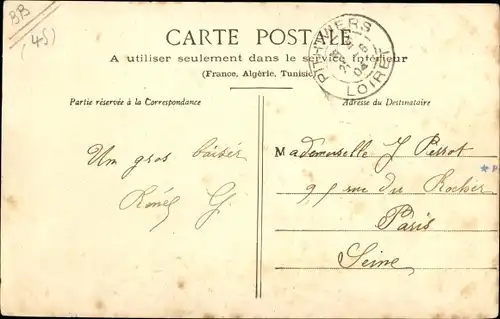 BB
(45)
CARTE POSTALE
A utiliser seulement dans le service Intérieur
(France, Algérie, Tunisie)
PITHIVIERS
LOIRET
04
Partie réservée à la Correspondance
Adresse du Destinataire
Un gros baiser
Renée G.
Mademoiselle J Perrot
95 rue du Rocher
Paris
Seine